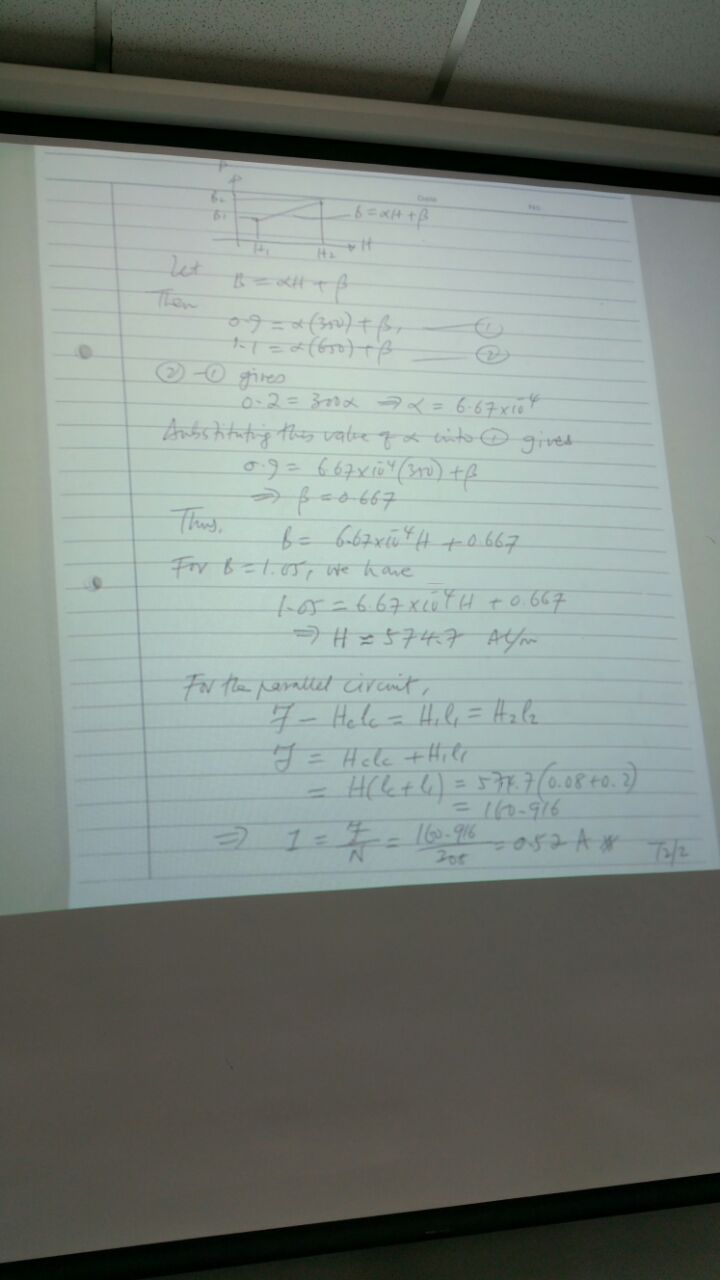 B₂
B₁
B = αH + β
H₁
H₂
H
Date
No.
Let
B = αH + β
Then
0.9 = α(350) + β, ——— ①
1.1 = α(650) + β ——— ②
② - ① gives
0.2 = 300α ⇒ α = 6.67×10⁻⁴
Substituting this value of α into ① gives
0.9 = 6.67×10⁻⁴(350) + β
⇒ β = 0.667
Thus,
B = 6.67×10⁻⁴H + 0.667
For B = 1.05, we have
1.05 = 6.67×10⁻⁴H + 0.667
⇒ H ≈ 574.7 At/m
For the parallel circuit,
F - Hclc = H₁l₁ = H₂l₂
F = Hclc + H₁l₁
= H(lc + l₁) = 574.7(0.08+0.2)
= 160.916
⇒ I = F/N = 160.916/ = 0.52 A
T2/2